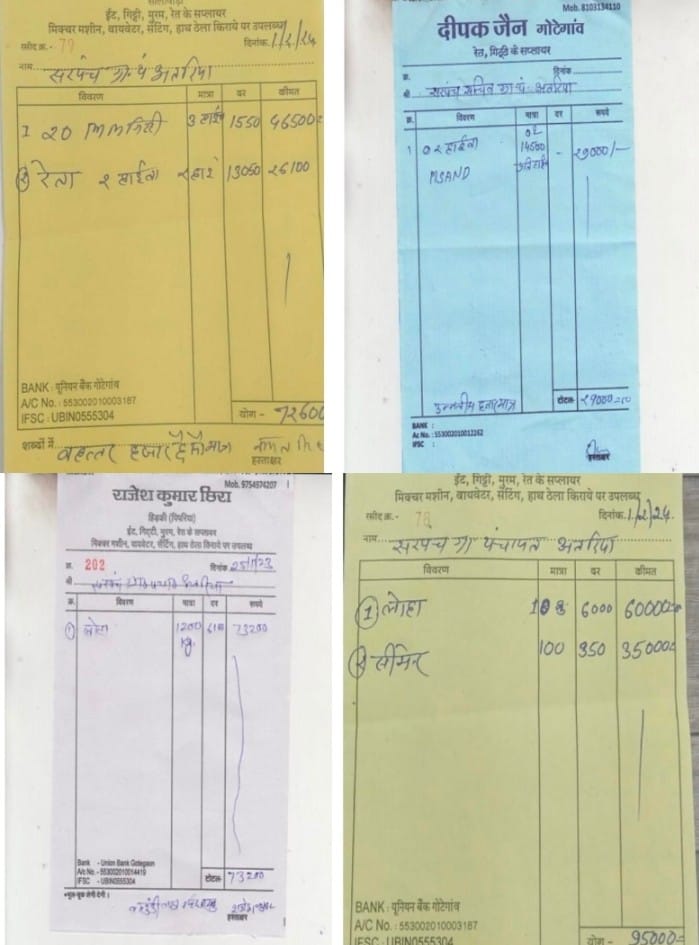 ईट, गिट्टी, मुरम, रेत के सप्लायर
मिक्चर मशीन, वायवेटर, सेंटिंग, हाथ ठेला किराये पर उपलब्ध
रसीद क्र.- 79 दिनांक. 1/2/24
नाम सरपंच ग्रा पं अतरिया
विवरण मात्रा दर कीमत
1 20 mm गिट्टी 3 हाईवा 1550 46500=
② रेता २ हाईवा २ हाई 13050 26100
BANK : यूनियन बैंक गोटेगांव
A/C No. : 553002010003187
IFSC : UBIN0555304
योग - 72600
शब्दों में बहत्तर हजार छैसौ मात्र
हस्ताक्षर
Mob. 8103134110
दीपक जैन गोटेगांव
रेत, गिट्टी के सप्लायर
क्र. दिनांक
श्री सरपंच सचिव ग्रा पं. अतरिया
क्र. विवरण मात्रा दर रुपये
1 0२ हाईवा 02 14500 - 29000/-
MSAND
उन्नतीस हजार मात्र
टोटल- 29000=00
BANK :
Ac No. : 553002010012262
IFSC :
हस्ताक्षर
Mob. 9754974207
राजेश कुमार छिरा
हिड़की (पिपरिया)
ईट, गिट्टी, मुरम, रेत के सप्लायर
मिक्चर मशीन, वायवेटर, सेंटिंग, हाथ ठेला किराये पर उपलब्ध
क्र. 202 दिनांक 25/1/23
श्री सरपंच
क्र. विवरण मात्रा दर रुपये
① लोहा 1200 kg. 6100 73200
Bank - Union Bank Gotegaon
A/c No - 553002010014419
IFSC - UBIN0555304
टोटल- 73200
*भूल-चूक लेनी देनी।
हस्ताक्षर
ईट, गिट्टी, मुरम, रेत के सप्लायर
मिक्चर मशीन, वायवेटर, सेंटिंग, हाथ ठेला किराये पर उपलब्ध
रसीद क्र.- 78 दिनांक. 1/2/24
नाम सरपंच ग्रा पंचायत अतरिया
विवरण मात्रा दर कीमत
① लोहा 6000 60000=
② सीमेन्ट 100 350 35000=
BANK : यूनियन बैंक गोटेगांव
A/C No. : 553002010003187
IFSC : UBIN0555304
योग - 95000=